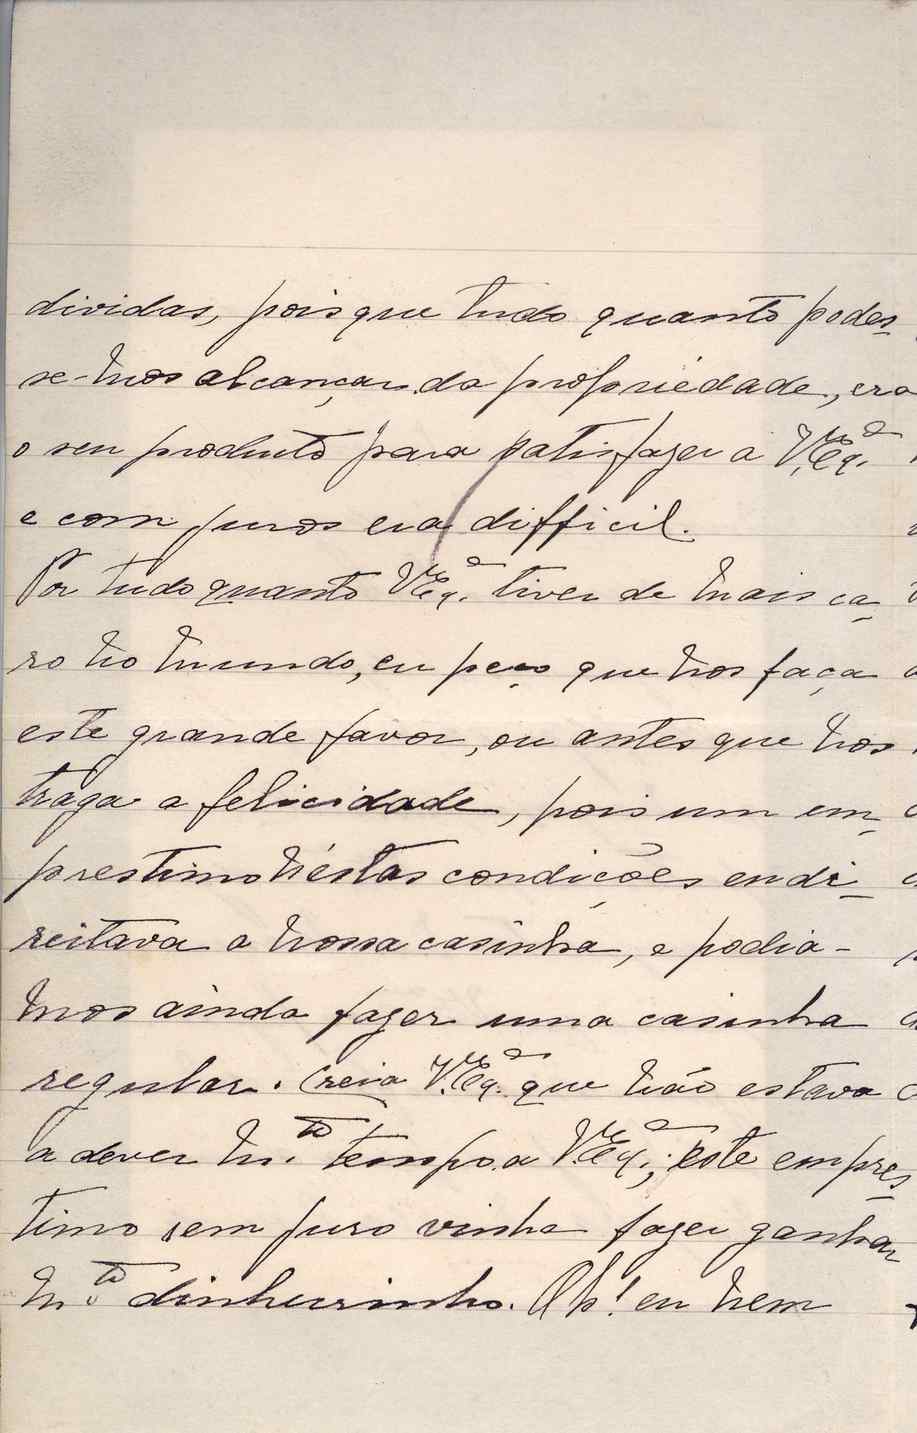 dividas, pois que tudo quanto podes-
se-mos alcançar da propriedade, era
o seu producto para satisfazer a V.Exª.
e com juros era difficil.
Por tudo quanto V.Exª. tiver de mais ca-
ro no mundo, eu peço que nos faça
este grande favor, ou antes que nos
traga a felicidade, pois um em-
prestimo n'éstas condições endi-
reitava a nossa casinha, e podia-
mos ainda fazer uma casinha
regular. Creia V.Exª. que não estava
a dever m.to tempo a V.Exª.; este empres-
timo sem juro vinha fazer ganhar
m.to dinheirinho. Ah! eu nem